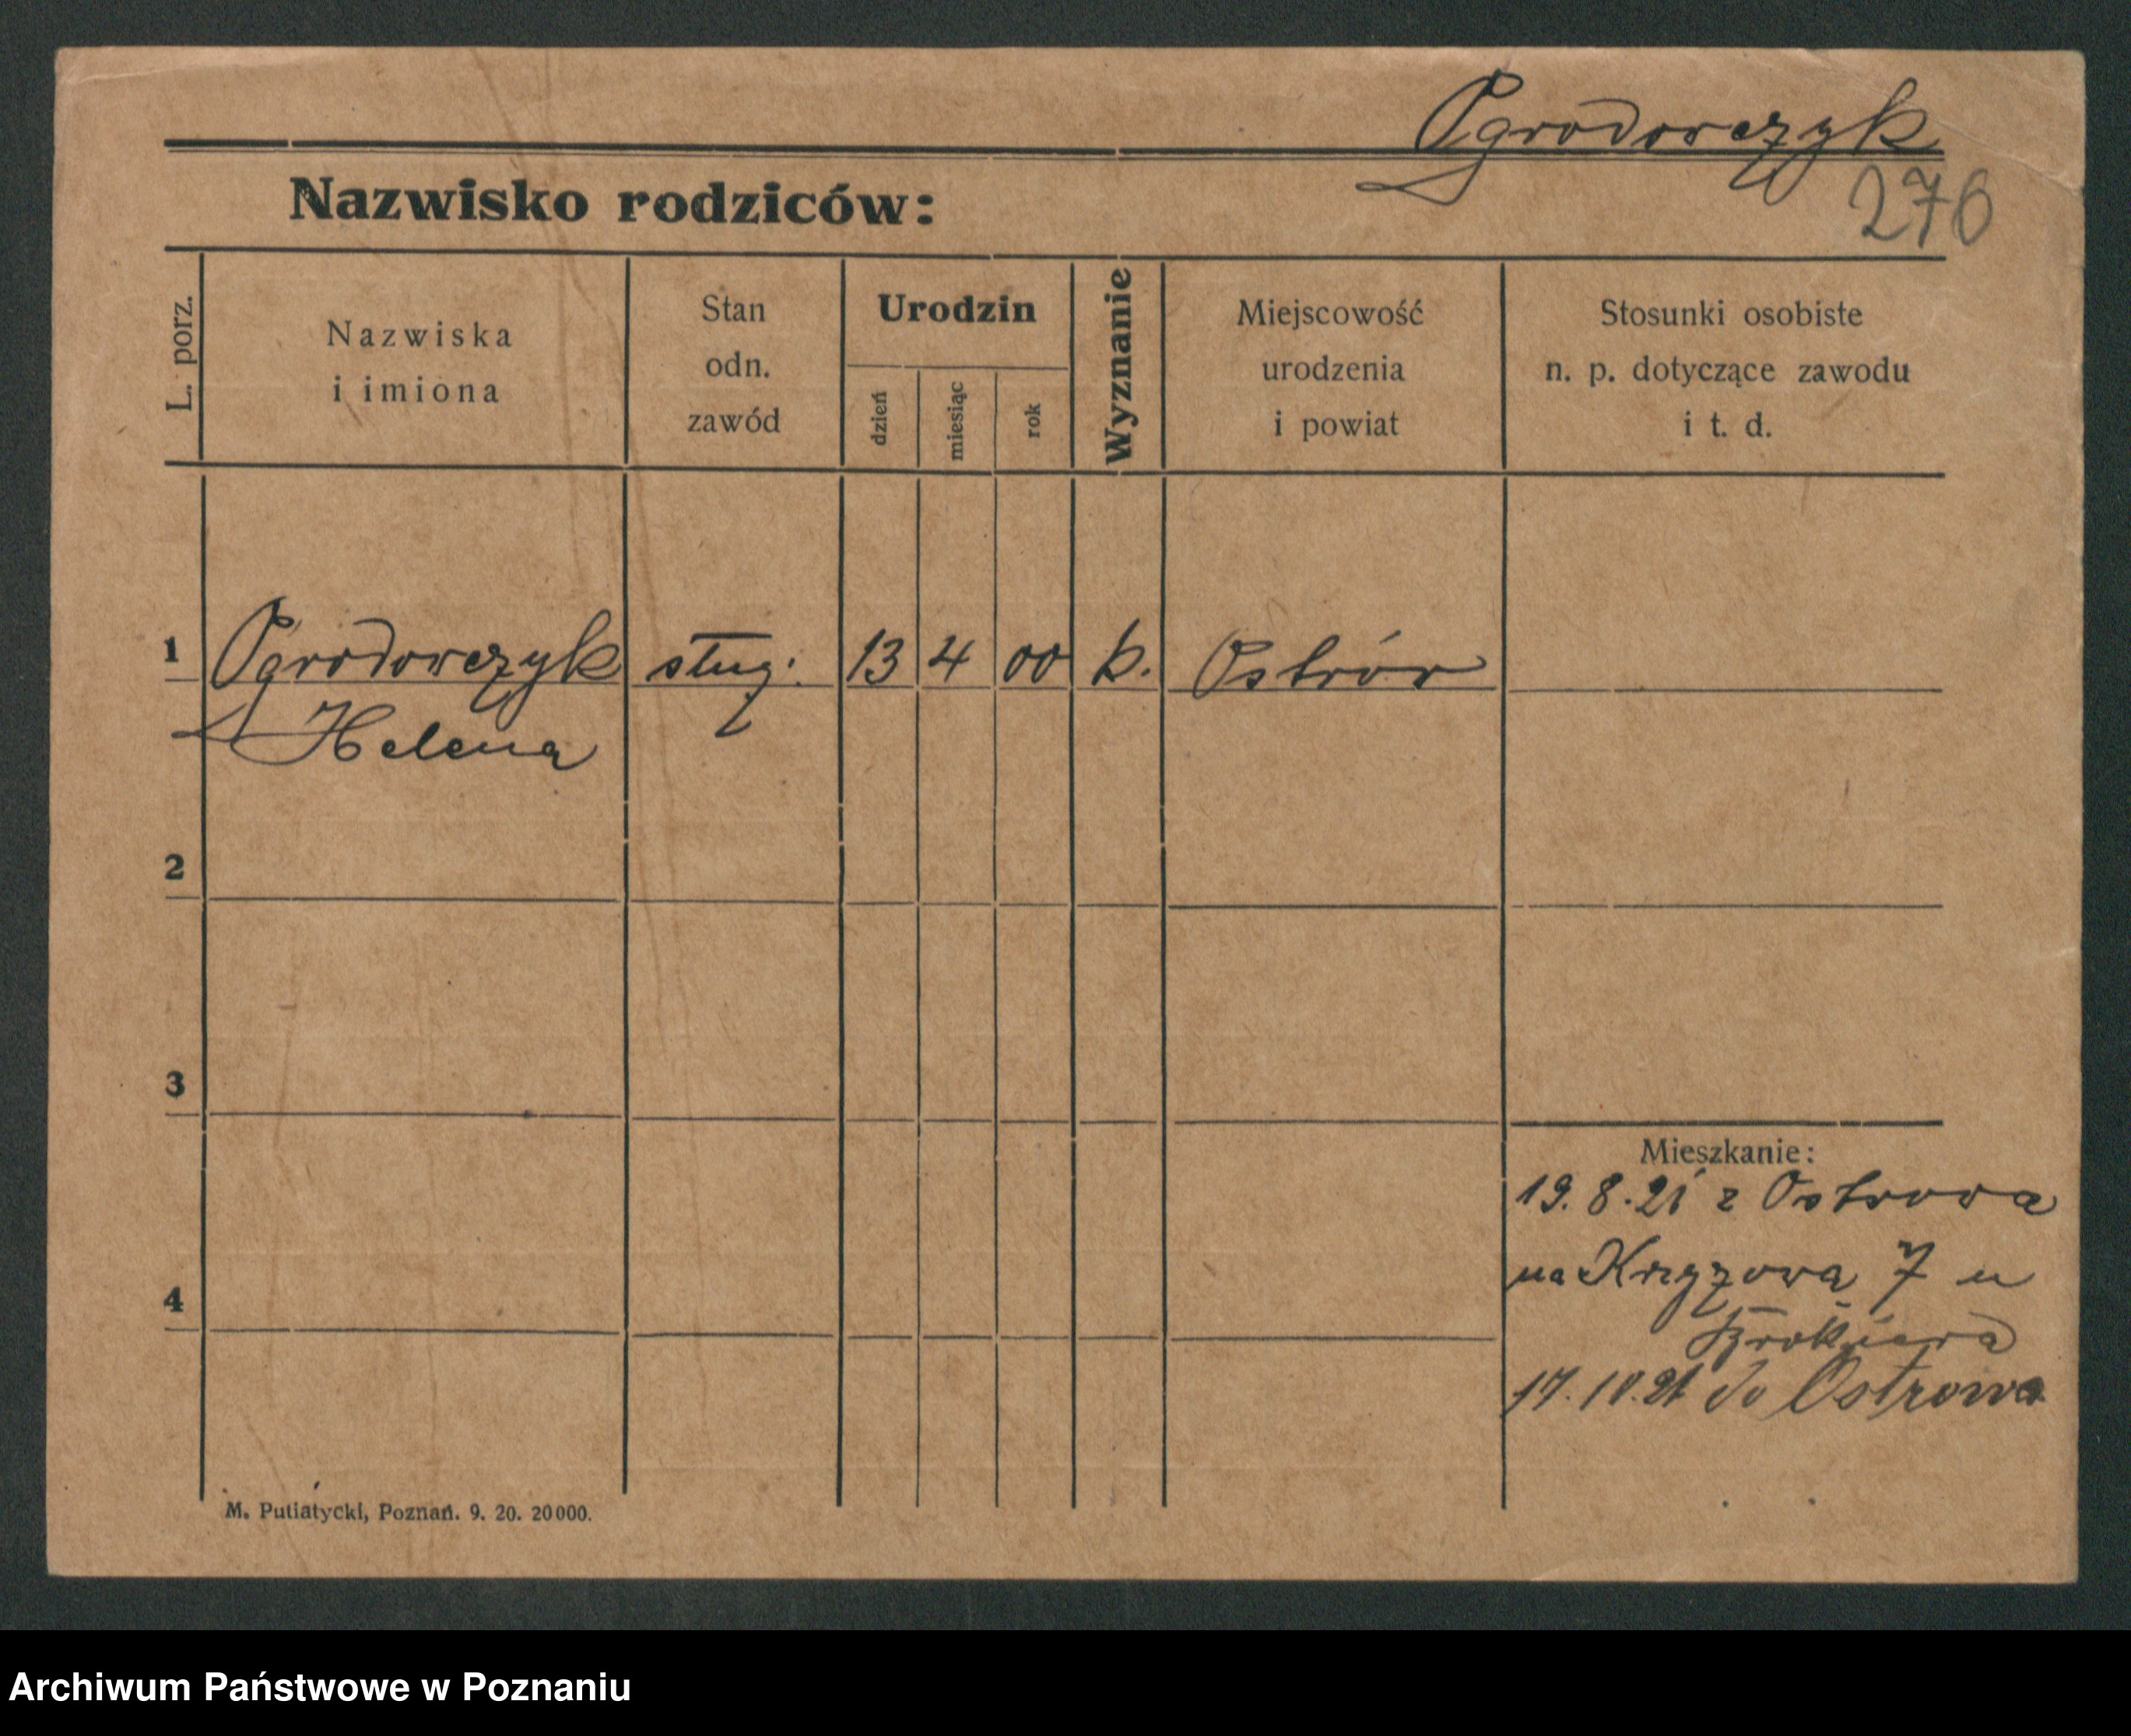 Ogrodowczyk
276
Nazwisko rodziców:
L. porz.
Nazwiska
i imiona
Stan
odn.
zawód
Urodzin
dzień
miesiąc
rok
Wyznanie
Miejscowość
urodzenia
i powiat
Stosunki osobiste
n. p. dotyczące zawodu
i t. d.
1 Ogrodowczyk służ. 13 4 00 k. Ostrów
Helena
2
3
Mieszkanie:
19.8.21 z Ostrowa
na Krzyżową 7 u
4
17.10.21 do Ostrowa
M. Putiatycki, Poznań. 9. 20. 20000.
Archiwum Państwowe w Poznaniu